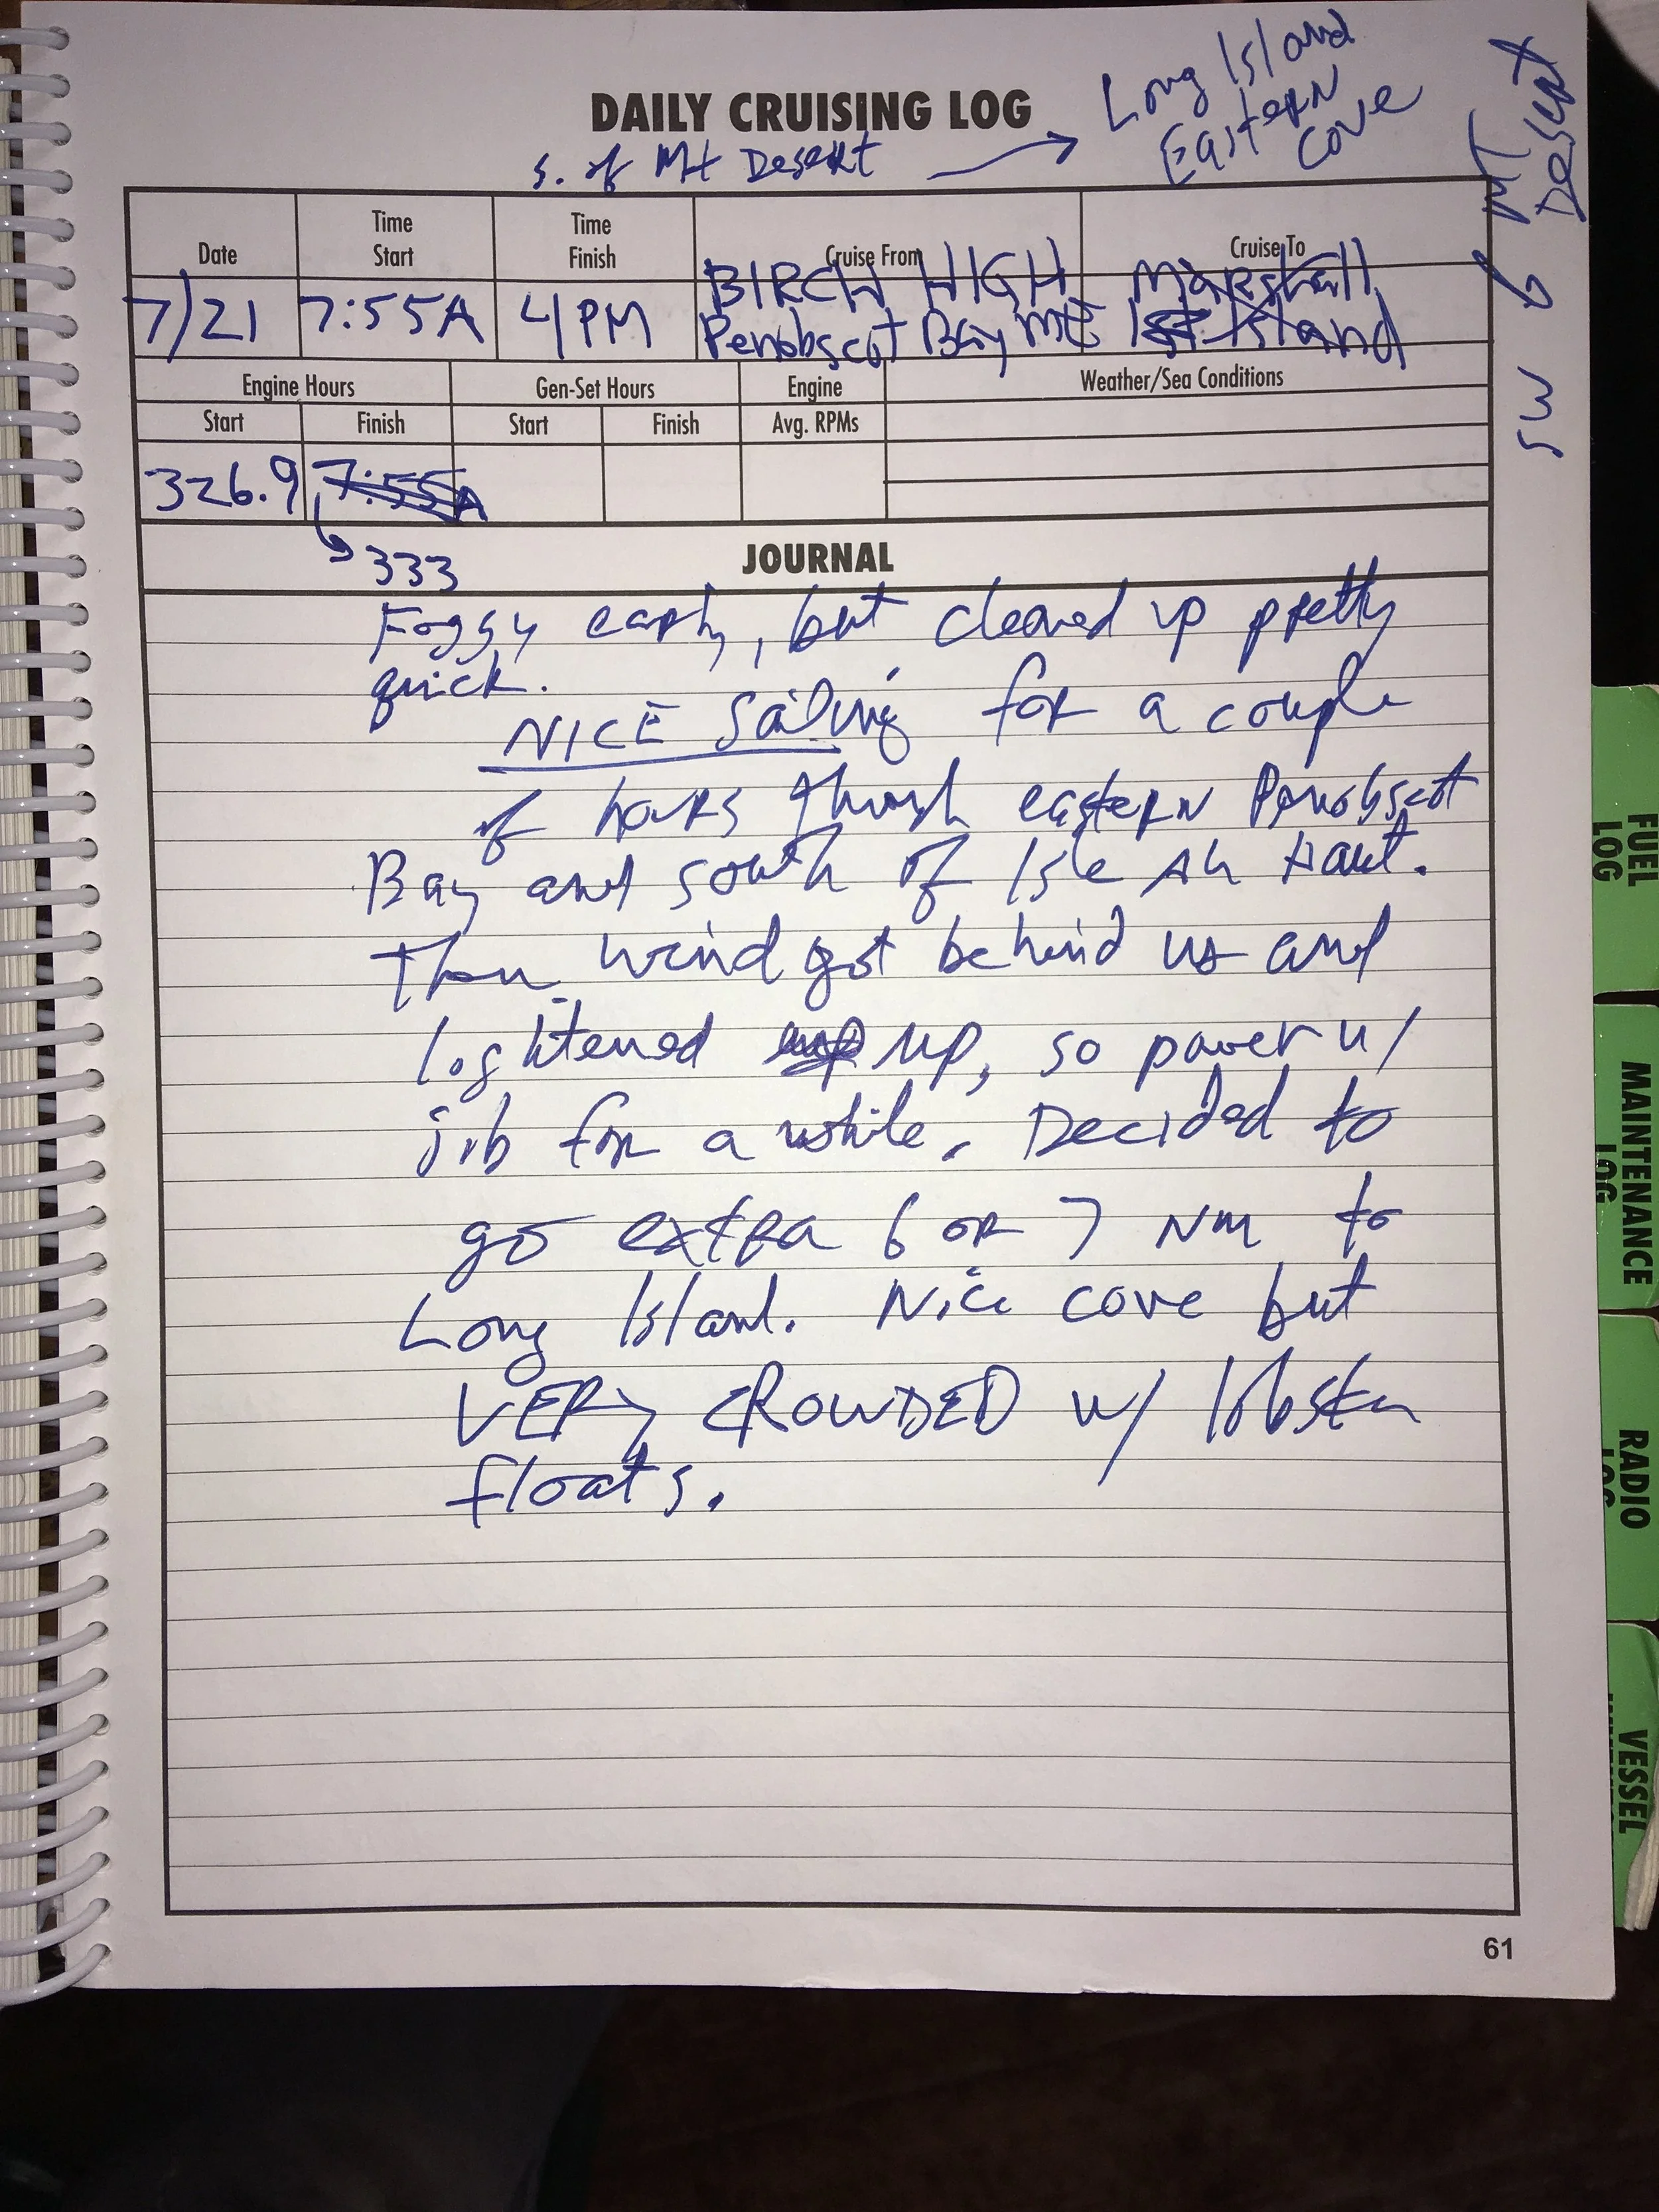 Long Island
Eastern
Cove
DAILY CRUISING LOG
s. of Mt Desert →
SW of MT Desert
Date
Time Start
Time Finish
Cruise From
Cruise To
7/21
7:55A
4PM
BIRCH HIGH
Penobscot Bay ME
Marshall
Island
Engine Hours
Gen-Set Hours
Engine
Weather/Sea Conditions
Start
Finish
Start
Finish
Avg. RPMs
326.9
7:55A
333
JOURNAL
Foggy early, but cleared up pretty
quick.
NICE Sailing for a couple
of hours through eastern Penobscot
Bay and south of Isle Au Haut.
Then wind got behind us and
lightened up, so power w/
jib for a while. Decided to
go extra 6 or 7 NM to
Long Island. Nice cove but
VERY CROWDED w/ lobster
floats.
61
FUEL
LOG
MAINTENANCE
LOG
RADIO
LOG
VESSEL